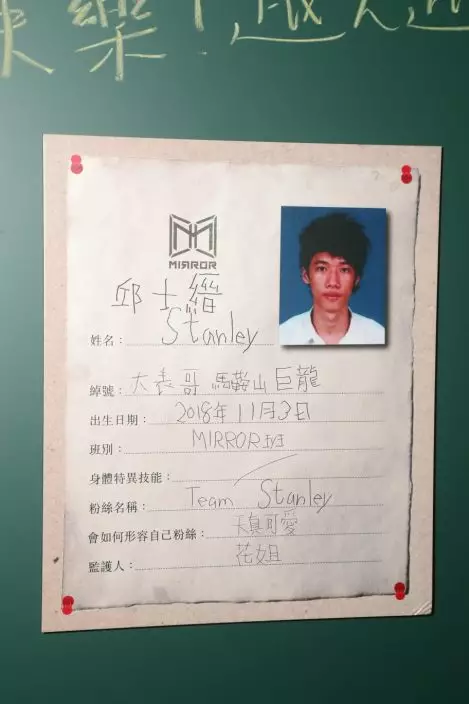 樂!
MIRROR
邱士縉
姓名: Stanley
綽號: 大表哥 馬鞍山巨龍
出生日期: 2018年11月3日
班別: MIRROR班
身體特異技能:
粉絲名稱: Team Stanley
會如何形容自己粉絲: 天真可愛
監護人: 花姐